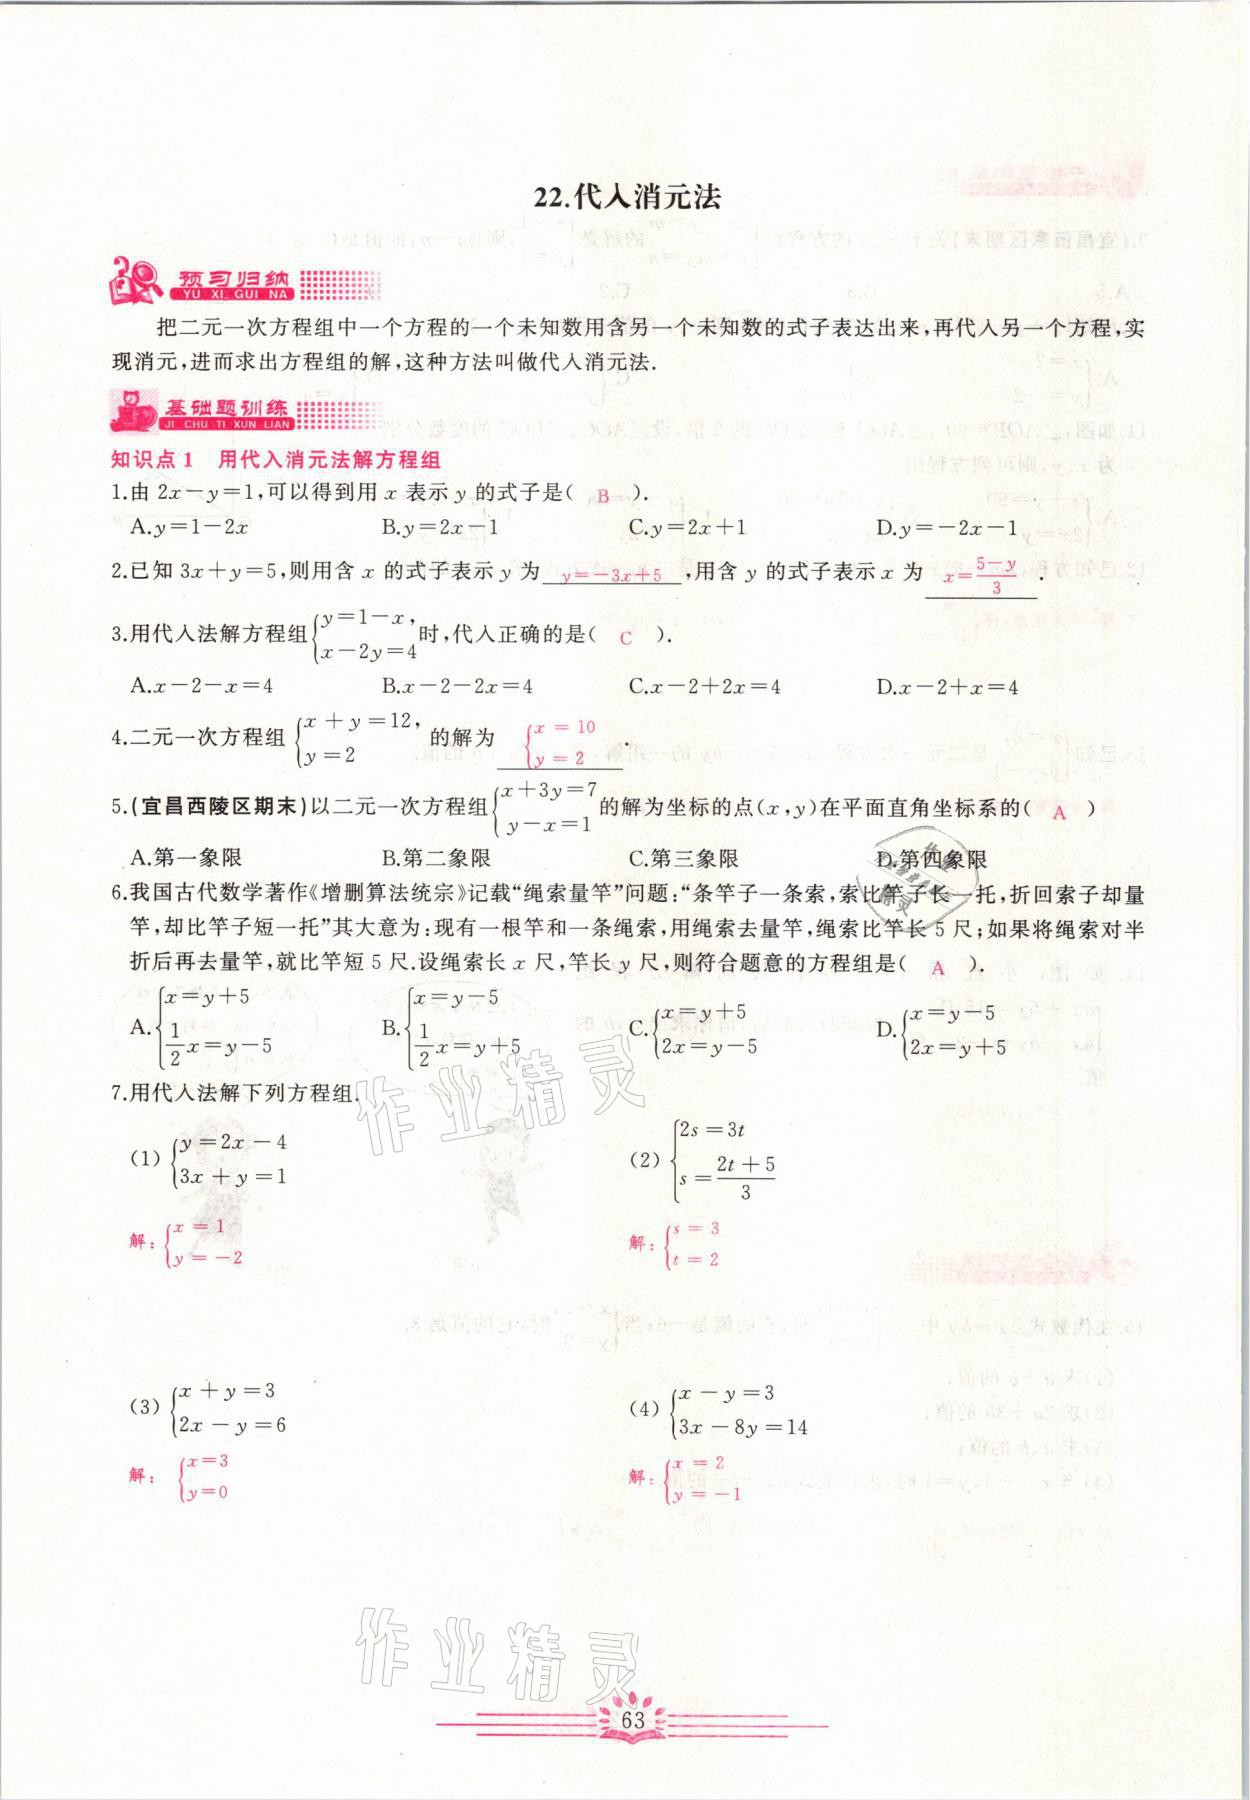 22.代入消元法
预习归纳
YU XI GUI NA
把二元一次方程组中一个方程的一个未知数用含另一个未知数的式子表达出来,再代入另一个方程,实
现消元,进而求出方程组的解,这种方法叫做代入消元法.
基础题训练
JI CHU TI XUN LIAN
知识点1 用代入消元法解方程组
1.由 2x－y＝1,可以得到用 x 表示 y 的式子是( B ).
A.y＝1－2x B.y＝2x－1 C.y＝2x＋1 D.y＝－2x－1
2.已知 3x＋y＝5,则用含 x 的式子表示 y 为 y＝－3x＋5 ,用含 y 的式子表示 x 为 x＝(5－y)/3 .
3.用代入法解方程组{y＝1－x, x－2y＝4 时,代入正确的是( C ).
A.x－2－x＝4 B.x－2－2x＝4 C.x－2＋2x＝4 D.x－2＋x＝4
4.二元一次方程组{x＋y＝12, y＝2 的解为 {x＝10 y＝2 .
5.(宜昌西陵区期末)以二元一次方程组{x＋3y＝7 y－x＝1 的解为坐标的点(x,y)在平面直角坐标系的( A )
A.第一象限 B.第二象限 C.第三象限 D.第四象限
6.我国古代数学著作《增删算法统宗》记载“绳索量竿”问题:“条竿子一条索,索比竿子长一托,折回索子却量
竿,却比竿子短一托”其大意为:现有一根竿和一条绳索,用绳索去量竿,绳索比竿长 5 尺;如果将绳索对半
折后再去量竿,就比竿短 5 尺.设绳索长 x 尺,竿长 y 尺,则符合题意的方程组是( A ).
A.{x＝y＋5 1/2x＝y－5 B.{x＝y－5 1/2x＝y＋5 C.{x＝y＋5 2x＝y－5 D.{x＝y－5 2x＝y＋5
7.用代入法解下列方程组.
(1){y＝2x－4 3x＋y＝1 (2){2s＝3t s＝(2t＋5)/3
解:{x＝1 y＝－2 解:{s＝3 t＝2
(3){x＋y＝3 2x－y＝6 (4){x－y＝3 3x－8y＝14
解:{x＝3 y＝0 解:{x＝2 y＝－1
作业精灵
作业精灵
63